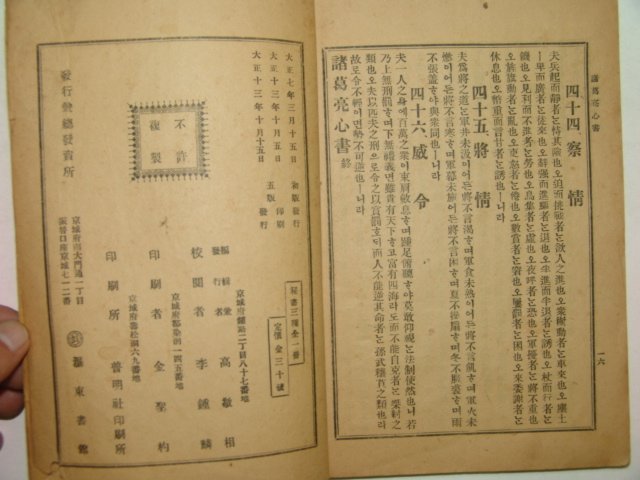 諸葛亮心書
一六
四十四 察情
夫兵起而靜者는恃其險也오迫而挑戰者는欲人之進也오衆樹動者는車來也오塵土
卑而廣者는徒來也오辭强而進驅者는退也오半進而半退者는誘也오杖而行者는
饑也오見利而不進者는勞也오鳥集者는虛也오夜呼者는恐也오軍擾者는將不重也
오旌旗動者는亂也오吏怒者는倦也오數賞者는窘也오屢罰者는困也오來委謝者는欲
休息也오幣重而言甘者는誘也ㅣ니라
四十五、將情
夫爲將之道는軍井未汲이어든將不言渴ᄒᆞ며軍食未熟이어든將不言飢ᄒᆞ며軍火未
燃이어든將不言寒ᄒᆞ며軍幕未施어든將不言困ᄒᆞ며夏不操扇ᄒᆞ며冬不服裘ᄒᆞ며雨
不張蓋ᄒᆞ야與衆同也ㅣ니라
四十六、威令
夫一人之身에百萬之衆이束肩斂息ᄒᆞ며踵足俯聽ᄒᆞ야莫敢仰視는法制使然也니若
乃上無刑罰ᄒᆞ며下無禮義면雖貴有天下ᄒᆞ고富有四海라도而不能自免者는桀紂之
類也오夫以匹夫之刑으로令之以賞罰호ᄃᆡ而人不能逆其命者는孫武穰苴之類也라
故로令不輕이며勢不可通也ㅣ니라
諸葛亮心書 終
大正七年三月十五日 初版發行
大正十三年十月十五日 五版印刷
大正十三年十月十五日 五版發行
不許複製
秘書三種全一冊
定價金三十號
京城府鍾路二丁目八十七番地
編輯兼發行者 高敬相
校閱者 李鍾麟
印刷者 金聖杓
印刷所 普明社印刷所
發行兼總發賣所
京城府南大門通一丁目
振替口座京城七一二番
滙東書館